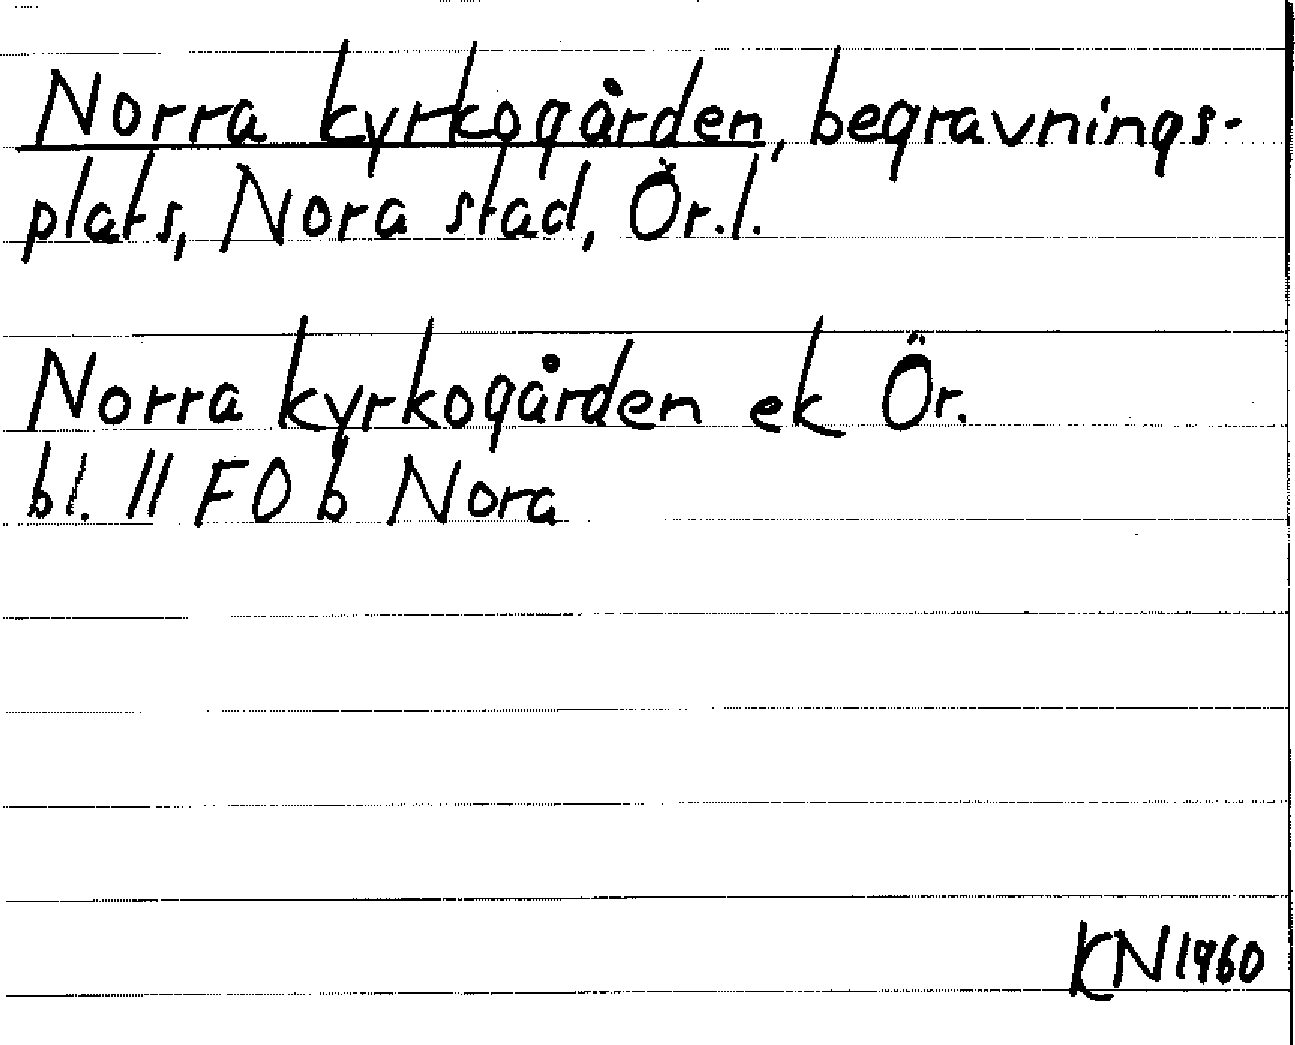 Norra kyrkogården, begravnings-
plats, Nora stad, Ör.l.
Norra kyrkogården ek Ör.
bl. 11 F0 b Nora
KN 1960